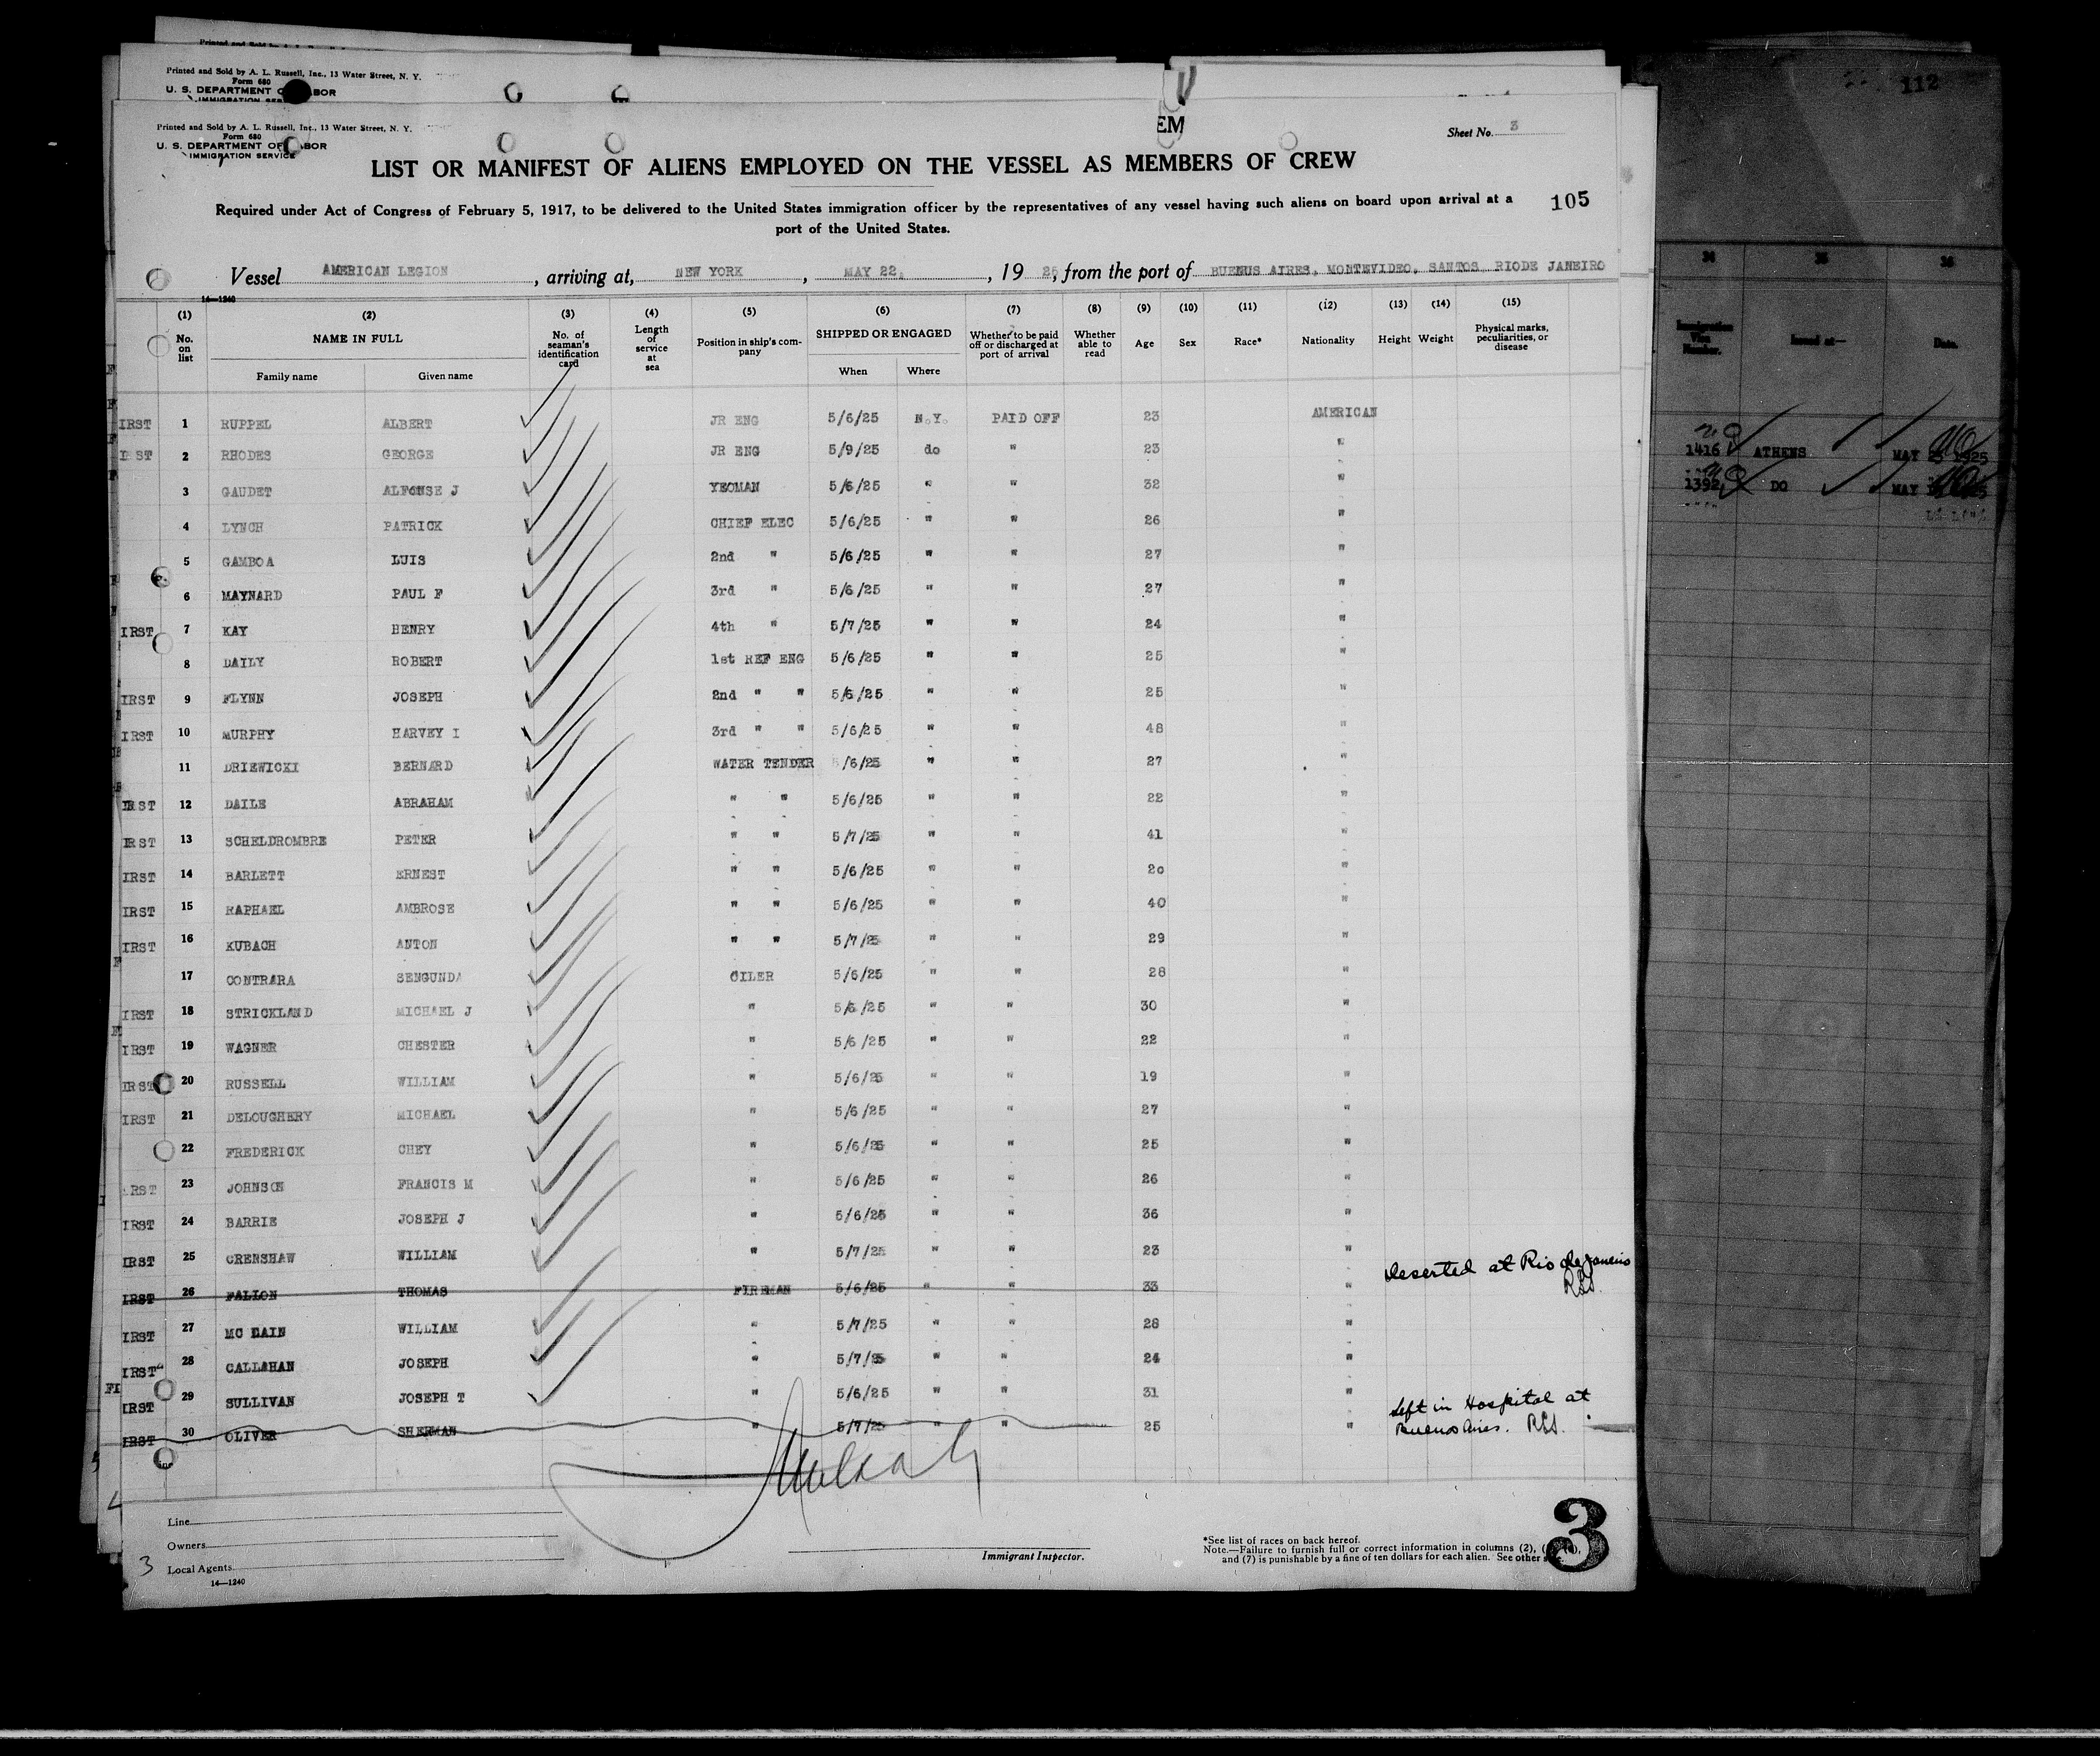 Printed and Sold by A. L. Russell, Inc., 13 Water Street, N. Y.
Form 680
U. S. DEPARTMENT OF LABOR
IMMIGRATION SERVICE
Printed and Sold by A. L. Russell, Inc., 13 Water Street, N. Y.
Form 680
U. S. DEPARTMENT OF LABOR
IMMIGRATION SERVICE
EM
Sheet No. 3
LIST OR MANIFEST OF ALIENS EMPLOYED ON THE VESSEL AS MEMBERS OF CREW
Required under Act of Congress of February 5, 1917, to be delivered to the United States immigration officer by the representatives of any vessel having such aliens on board upon arrival at a
port of the United States.
105
Vessel AMERICAN LEGION, arriving at, NEW YORK, MAY 22, 1925, from the port of BUENUS AIRES, MONTEVIDEO, SANTOS, RIODE JANEIRO
14—1240
(1) No. on list (2) NAME IN FULL Family name Given name (3) No. of seaman's identification card (4) Length of service at sea (5) Position in ship's company (6) SHIPPED OR ENGAGED When Where (7) Whether to be paid off or discharged at port of arrival (8) Whether able to read (9) Age (10) Sex (11) Race* (12) Nationality (13) Height (14) Weight (15) Physical marks, peculiarities, or disease
IRST 1 RUPPEL ALBERT JR ENG 5/6/25 N.Y. PAID OFF 23 AMERICAN
ST 2 RHODES GEORGE JR ENG 5/9/25 do " 23 "
3 GAUDET ALFONSE J YEOMAN 5/6/25 " " 32 "
4 LYNCH PATRICK CHIEF ELEC 5/6/25 " " 26 "
5 GAMBOA LUIS 2nd " 5/6/25 " " 27 "
6 MAYNARD PAUL F 3rd " 5/6/25 " " 27 "
IRST 7 KAY HENRY 4th " 5/7/25 " " 24 "
8 DAILY ROBERT 1st REF ENG 5/6/25 " " 25 "
IRST 9 FLYNN JOSEPH 2nd " " 5/6/25 " " 25 "
IRST 10 MURPHY HARVEY I 3rd " " 5/6/25 " " 48 "
11 DRIEWICKI BERNARD WATER TENDER /6/25 " " 27 "
IRST 12 DAILE ABRAHAM " " 5/6/25 " " 22 "
IRST 13 SCHELDROMBRE PETER " " 5/7/25 " " 41 "
IRST 14 BARLETT ERNEST " " 5/6/25 " " 20 "
IRST 15 RAPHAEL AMBROSE " " 5/6/25 " " 40 "
IRST 16 KUBACH ANTON " " 5/7/25 " " 29 "
17 CONTRARA SENGUNDA OILER 5/6/25 " " 28 "
IRST 18 STRICKLAND MICHAEL J " 5/6/25 " " 30 "
IRST 19 WAGNER CHESTER " 5/6/25 " " 22 "
IRST 20 RUSSELL WILLIAM " 5/6/25 " " 19 "
IRST 21 DELOUGHERY MICHAEL " 5/6/25 " " 27 "
22 FREDERICK CHEY " 5/6/25 " " 25 "
RST 23 JOHNSON FRANCIS M " 5/6/25 " " 26 "
IRST 24 BARRIE JOSEPH J " 5/6/25 " " 36 "
IRST 25 CRENSHAW WILLIAM " 5/7/25 " " 23 "
IRST 26 FALLON THOMAS FIREMAN 5/6/25 " " 33 " Deserted at Rio de Janeiro
IRST 27 MC BAIN WILLIAM " 5/7/25 " " 28 "
IRST 28 CALLAHAN JOSEPH " 5/7/25 " " 24 "
IRST 29 SULLIVAN JOSEPH T " 5/6/25 " " 31 "
IRST 30 OLIVER SHERMAN " 5/7/25 " " 25 " Left in Hospital at
Buenos Aires.
Line
Owners
Local Agents
14—1240
3
Immigrant Inspector.
*See list of races on back hereof.
Note.—Failure to furnish full or correct information in columns (2),
and (7) is punishable by a fine of ten dollars for each alien. See other
3
112
34 35 36
Immigration Visa Number. Issued at— Date.
1416 ATHENS MAY 1925
1392 DO MAY